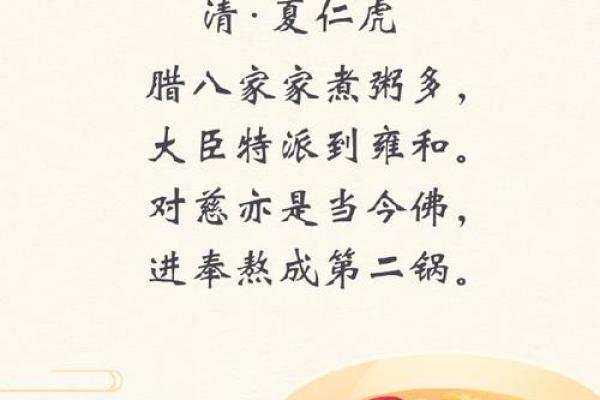 清·夏仁虎
腊八家家煮粥多，
大臣特派到雍和。
对慈亦是当今佛，
进奉熬成第二锅。